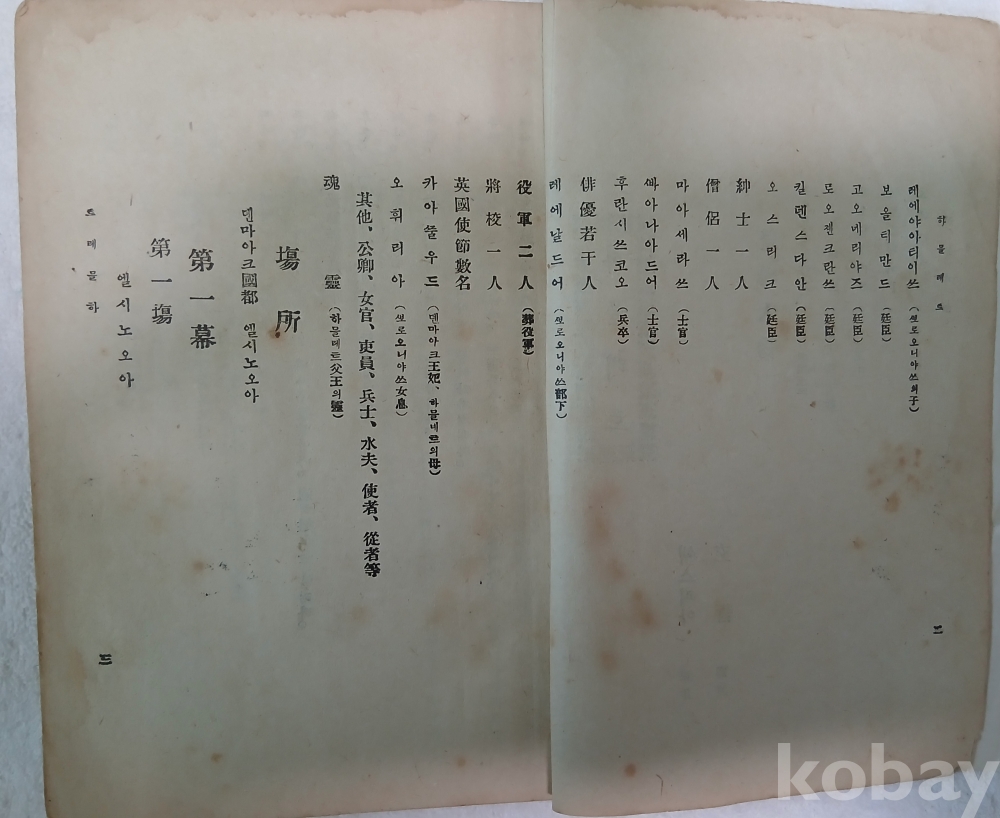 하믈레트
레에야아티이쓰 (포로오니아쓰의子)
보올티만드 (廷臣)
고오네리야즈 (廷臣)
로오젠크란쓰 (廷臣)
킬덴스다안 (廷臣)
오스리크 (廷臣)
紳士一人
僧侶一人
마아세라쓰 (士官)
빠아나아드어 (士官)
후란시쓰코오 (兵卒)
俳優若干人
레에날드어 (포로오니야쓰部下)
二
役軍二人 (葬役軍)
將校一人
英國使節數名
카아쭐우드 (덴마아크王妃、하믈네트의母)
오휘리아 (포로오니야쓰女息)
其他、公卿、女官、吏員、兵士、水夫、使者、從者等
魂靈 (하믈레트父王의靈)
場所
덴마아크國都 엘시노오아
第一幕
第一場
엘시노오아
하믈레트
三